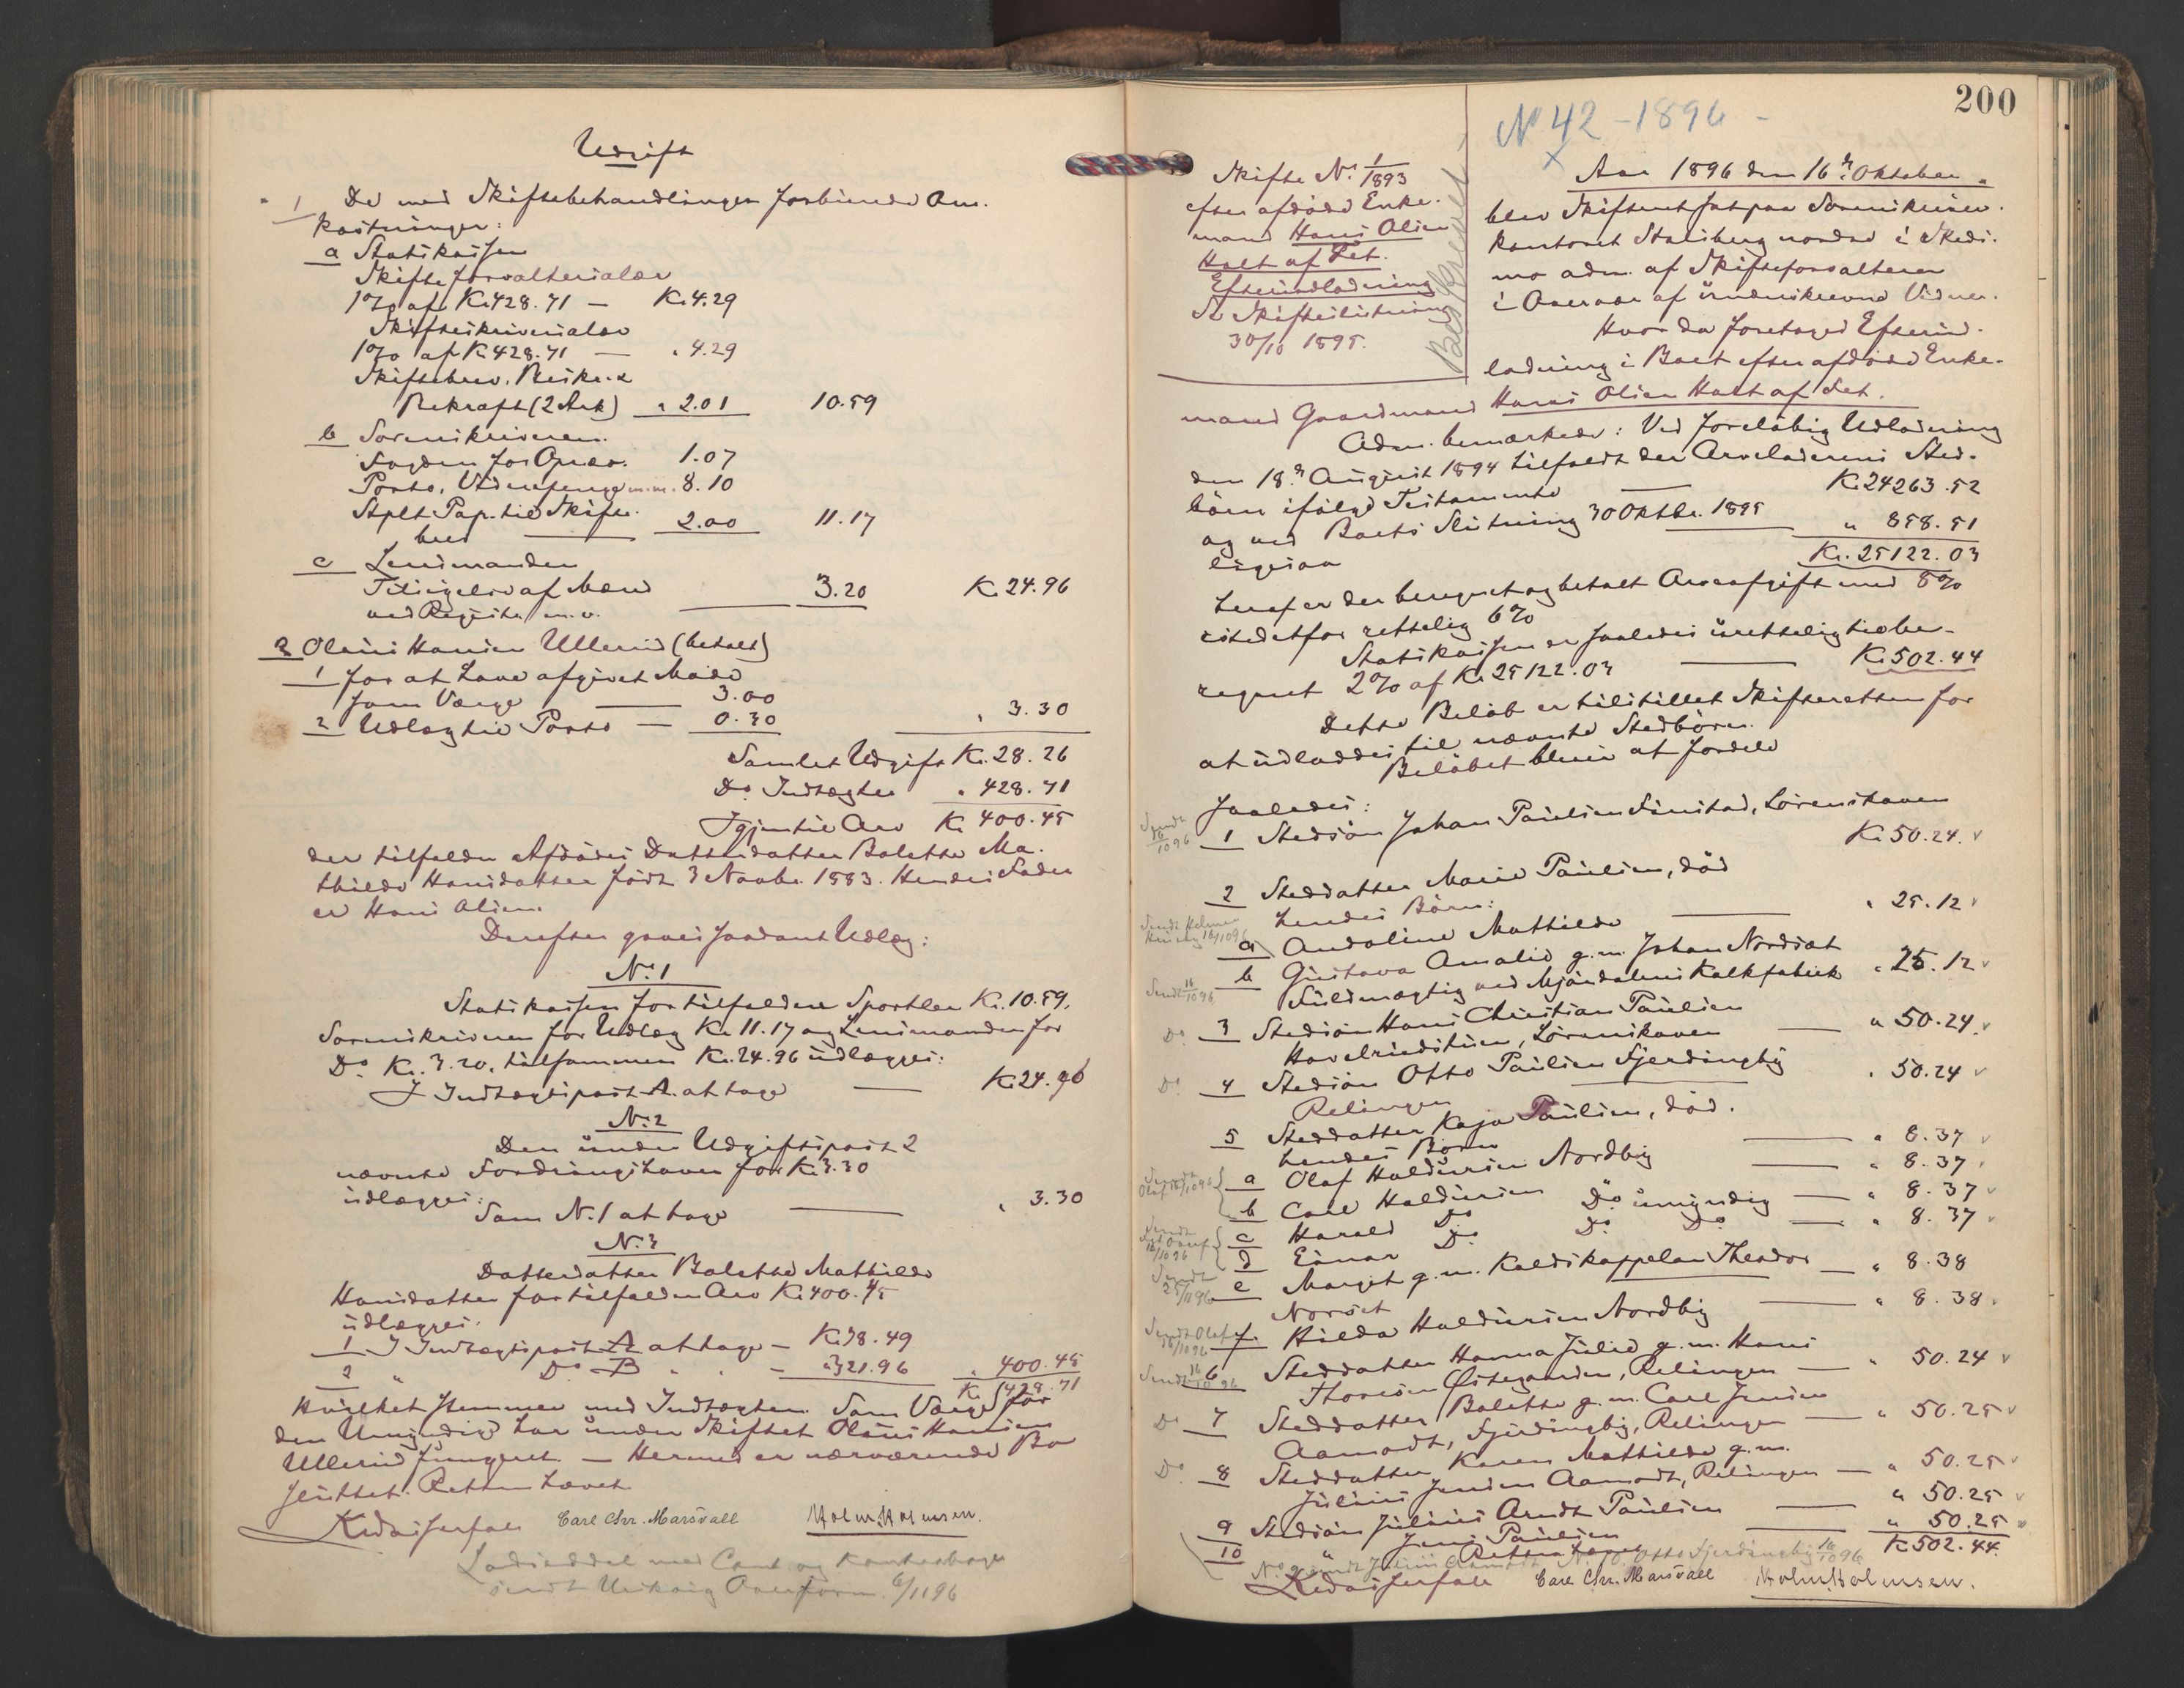 Udgift
1 De med Skiftebehandlingen forbundne Om-
kostninger:
a Statskassen
Skifteforvaltersalær
1% af Kr. 428.71 — Kr. 4.29
Skifteskriversalær
1% af Kr. 428.71 — " 4.29
Skiftebrev, Beskr. &
Rekraft (2 Ark) " 2.01 10.59
b Sorenskriveren.
Fogden for Opkr. 1.07
Porto, Vidnepenge m.m. 8.10
Stplt. Pap. til Skifte-
brev 2.00 11.17
c Lensmanden
Tilsigelse af Mænd
ved Registr. m.v. 3.20 Kr. 24.96
2 Oluus Hansen Ullerud (betalt)
1 for at have afgivet Møde
som Værge 3.00
2 Udlæg til Porto — 0.30 " 3.30
Samlet Udgift Kr. 28.26
Do Indtægter " 428.71
Igjen til Arv Kr. 400.45
der tilfalder Afdødes Datterdatter Bolette Ma-
thilde Hansdatter født 3 Novbr. 1883. Hendes Fader
er Hans Olsen.
Derefter gaves saadant Udlæg:
No. 1
Statskassen for tilfaldne Sportler Kr. 10.59,
Sorenskriveren for Udlæg Kr. 11.17 og Lensmanden for
Do. Kr. 3.20, tilsammen Kr. 24.96 udlægges:
I Indtægtspost A. at tage — Kr. 24.96
No. 2
Den under Udgiftspost 2
nævnte Fordringshaver for Kr. 3.30
udlægges:
Som No. 1 at tage — " 3.30
No. 3
Datterdatter Bolette Mathilde
Hansdatter for tilfalden Arv Kr. 400.45
udlægges.
1 I Indtægtspost A at tage — Kr. 78.49
2 " Do B " " — " 321.96 " 400.45
Kr. 428.71
hvilket stemmer med Indtægten. Som Værge for
den Umyndige har under Skiftet Oluus Hansen
Ullerud fungeret. — Hermed er nærværende Bo
sluttet. Retten hævet.
Carl Chr. Marsvall Holm Holmsen.
Ladseddel med Cont. og Kontrabog
sendt Urskoug Overform. 6/11 96
200
No 42 - 1896 -
Skifte No. 1/1893
efter afdøde Enke-
mand Hans Olsen
Holt af Fet.
Efterudlodning
Se Skifteslutning
30/10 1895.
Aar 1896 den 16de Oktober
blev Skifteret sat paa Sorenskriver-
kontoret Stalsberg nordre i Skeds-
mo adm. af Skifteforvalteren
i Overvær af underskrevne Vidner.
Hvor da foretoges Efterud-
lodning i Boet efter afdøde Enke-
mand Gaardmand Hans Olsen Holt af Fet.
Adm. bemærkede: Ved foreløbig Udlodning
den 18de August 1894 tilfaldt der Arveladerens Sted-
børn ifølge Testamente — Kr. 24263.52
og ved Boets Slutning 30 Oktbr. 1895
ligesaa " 858.51
Kr. 25122.03
heraf er der beregnet og betalt Arveafgift med 8%
istedetfor rettelig 6%
Statskassen er saaledes urettelig tilbe-
regnet 2% af Kr. 25122.03 — Kr. 502.44
Dette Beløb er tilstillet Skifteretten for
at udloddes til nævnte Stedbørn.
Beløbet bliver at fordele
saaledes:
1 Stedsøn Johan Paulsen Finstad, Lørenskoven
Kr. 50.24.
2 Steddatter Marie Paulsen, død
hendes Børn:
a Andoline Mathilde — " 25.12
b Gustava Amalie g.m. Johan Nordsæt
Fuldmægtig ved Mjøndalens Kalkfabrik " 25.12
3 Stedsøn Hans Christian Paulsen
Hovelsrudstuen, Lørenskoven — " 50.24
4 Stedsøn Otto Paulsen Fjerdingby
Relingen " 50.24
5 Steddatter Kaja Paulsen, død.
hendes Børn
a Olaf Haldursen Nordby — " 8.37
b Carl Haldursen Do umyndig — " 8.37
c Harald Do Do Do — " 8.37
d Einar Do Do Do — " 8.37
e Margit g.m. Kaldskappelan Theodor — " 8.38
Norset
f. Hilda Haldursen Nordby — " 8.38
6 Steddatter Hanna Julie g.m. Hans
Thoresen Østegaarden, Relingen — " 50.24
7 Steddatter Bolette g.m. Carl Jensen
Aamodt, Fjerdingby, Relingen — " 50.25
8 Steddatter Karen Mathilde g.m.
Julius Jensen Aamodt, Relingen — " 50.25
9 Stedsøn Julius Arndt Paulsen — " 50.25
10 " Jens Paulsen — " 50.25
Kr. 502.44.
Retten hævet
Carl Chr. Marsvall Holm Holmsen.